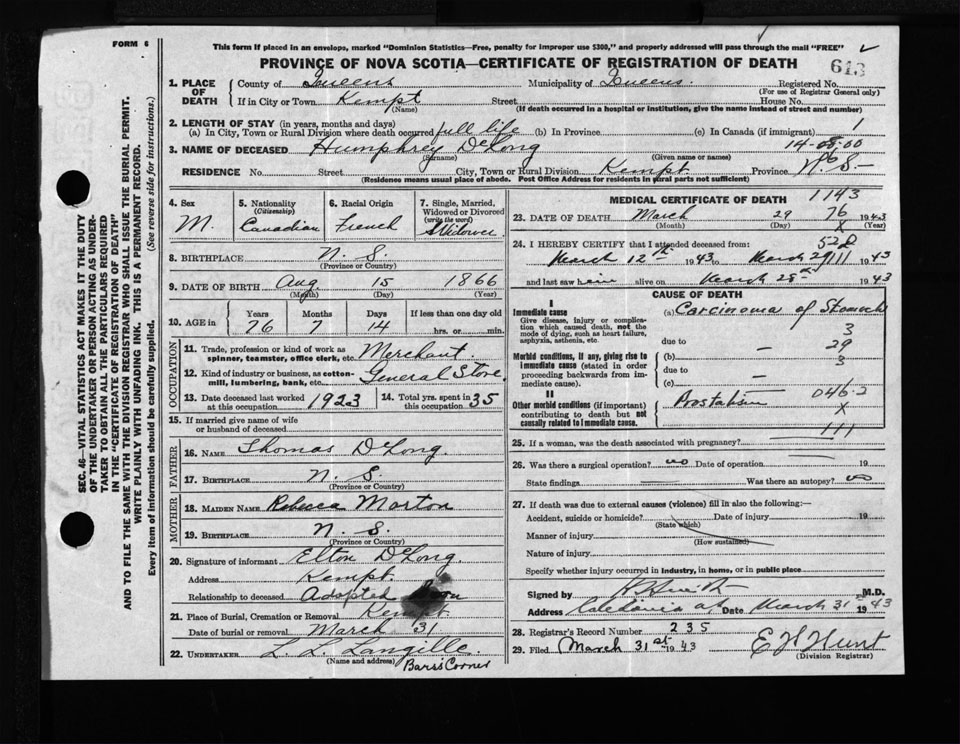 FORM 6
This form if placed in an envelope, marked "Dominion Statistics—Free, penalty for improper use $300," and properly addressed will pass through the mail "FREE"
PROVINCE OF NOVA SCOTIA—CERTIFICATE OF REGISTRATION OF DEATH
613
1. PLACE OF DEATH
County of Queens Municipality of Queens. Registered No.
(For use of Registrar General only)
If in City or Town Kempt Street House No.
(Name) (If death occurred in a hospital or institution, give the name instead of street and number)
2. LENGTH OF STAY (in years, months and days)
(a) In City, Town or Rural Division where death occurred full life (b) In Province (c) In Canada (if immigrant) 1
14-08-00
3. NAME OF DECEASED Humphrey DeLong
(Surname) (Given name or names)
RESIDENCE No. Street City, Town or Rural Division Kempt. Province N.S.
(Residence means usual place of abode. Post Office Address for residents in rural parts not sufficient)
4. Sex M.
5. Nationality (Citizenship) Canadian
6. Racial Origin French
7. Single, Married, Widowed or Divorced (write the word) Widower
8. BIRTHPLACE N. S.
(Province or Country)
9. DATE OF BIRTH Aug 15 1866
(Month) (Day) (Year)
10. AGE in Years 76 Months 7 Days 14 If less than one day old hrs. or min.
OCCUPATION
11. Trade, profession or kind of work as spinner, teamster, office clerk, etc. Merchant.
12. Kind of industry or business, as cotton-mill, lumbering, bank, etc. General Store.
13. Date deceased last worked at this occupation 1923
14. Total yrs. spent in this occupation 35
15. If married give name of wife or husband of deceased
FATHER
16. NAME Thomas DeLong.
17. BIRTHPLACE N. S.
(Province or Country)
MOTHER
18. MAIDEN NAME Rebecca Morton
19. BIRTHPLACE N. S.
(Province or Country)
20. Signature of informant Elton DeLong
Address Kempt.
Relationship to deceased Adopted
21. Place of Burial, Cremation or Removal Kempt.
Date of burial or removal March 31
22. UNDERTAKER L. L. Langille.
(Name and address) Barss Corner
MEDICAL CERTIFICATE OF DEATH
1143
23. DATE OF DEATH March 29 76 1943
(Month) (Day) X (Year)
24. I HEREBY CERTIFY that I attended deceased from: 528
March 12th 1943 to March 29 111 1943
and last saw him alive on March 28th 1943
CAUSE OF DEATH
I
Immediate cause
Give disease, injury or complication which caused death, not the mode of dying, such as heart failure, asphyxia, asthenia, etc.
(a) Carcinoma of Stomach
3
due to
29
Morbid conditions, if any, giving rise to immediate cause (stated in order proceeding backwards from immediate cause).
(b) —
3
due to
(c) —
II
Other morbid conditions (if important) contributing to death but not causally related to immediate cause.
Prostatism 046.2
X
111
25. If a woman, was the death associated with pregnancy?
26. Was there a surgical operation? no Date of operation 19
State findings Was there an autopsy? no
27. If death was due to external causes (violence) fill in also the following:—
Accident, suicide or homicide? Date of injury 19
(State which)
Manner of injury
(How sustained)
Nature of injury
Specify whether injury occurred in industry, in home, or in public place
Signed by M.D.
Address Caledonia Date March 31 1943
28. Registrar's Record Number 235
29. Filed March 31st 1943 E J Hunt
(Division Registrar)
SEC. 46—VITAL STATISTICS ACT MAKES IT THE DUTY
OF THE UNDERTAKER OR PERSON ACTING AS UNDER-
TAKER TO OBTAIN ALL THE PARTICULARS REQUIRED
IN THE "CERTIFICATE OF REGISTRATION OF DEATH"
AND TO FILE THE SAME WITH THE DIVISION REGISTRAR WHO SHALL ISSUE THE BURIAL PERMIT.
WRITE PLAINLY WITH UNFADING INK. THIS IS A PERMANENT RECORD.
Every item of information should be carefully supplied. (See reverse side for instructions.)